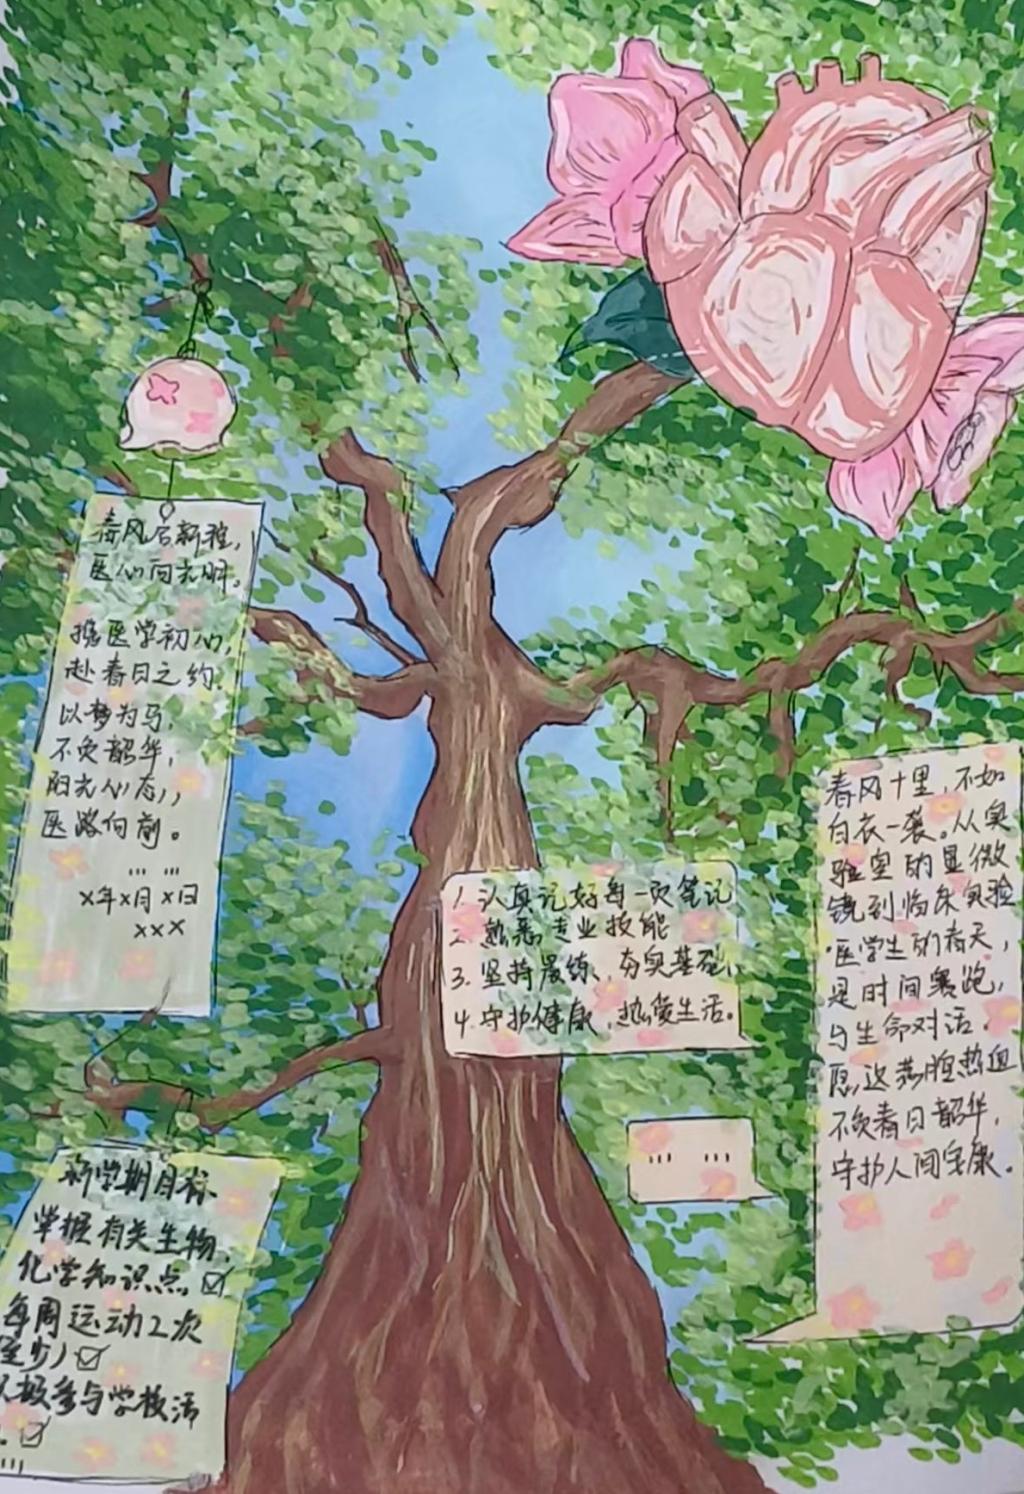 春风启新程,
医心向光明。
携医学初心,
赴春日之约.
以梦为马,
不负韶华,
阳光心态,,
医路向前。
... ...
x年x月x日
xxx
新学期目标
掌握有关生物,
化学知识点。☑
每周运动2次
至少)☑
极参与学校活
. ☑
...
1. 认真记好每一次笔记
2. 熟悉专业技能
3. 坚持晨练、夯实基础、
4. 守护健康,热爱生活。
... ...
春风十里,不如
白衣一袭。从实
验室的显微
镜到临床实验
.医学生的春天,
是时间赛跑,
与生命对话.
愿这满腔热血
不负春日韶华,
守护人间安康。